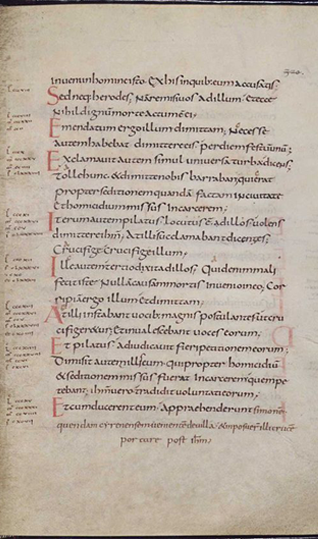 inuenio in homine isto. Ex his in quib; eum accusatis;
Sed neq; herodes; Nam remisi uos ad illum. Et ecce
Nihil dignum morte actum e ei;
Emendatum ergo illum dimittam; Necesse
autem habebat dimittere eis per diem festum unū;
Exclamauit autem simul uniuersa turba dicens;
Tolle hunc & dimitte nobis barraban qui erat
propter seditionem quandā factam in ciuitate
& homicidium missus in carcerem;
Iterum autem pilatus locutus ē ad illos uolens
dimittere ihm; At illi succlamabant dicentes;
Crucifige Crucifige illum;
Ille autem tertio dixit ad illos; Quid enim mali
fecit iste; Nullā causam mortis inuenio in eo; Cor
ripiā ergo illum & dimittam;
At illi instabant uocib; magnis postulantes ut cru
cifigeretur; Et inualescebant uoces eorum;
Et pilatus adiudicauit fieri petitionem eorum;
Dimisit autem illis eum qui propter homicidiū
& seditionem missus fuerat in carcerem quem pe
tebant; ihm uero tradidit uoluntati eorum;
Et cum ducerent eum; Appraehenderunt simonē
quendam cyrenensem uenientē de uilla; & imposuer illi crucē
portare post ihm;